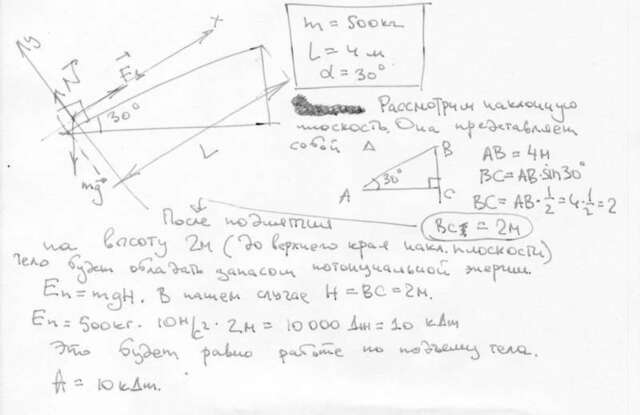 m = 500кг
L = 4 м
α = 30°
y
x
N
F
30°
mg
L
Рассмотрим наклонную
плоскость. Она представляет
собой △
A
30°
B
C
AB = 4м
BC = AB·sin30°
BC = AB·1/2 = 4·1/2 = 2
BC = 2м
После поднятия
на высоту 2м (до верхнего края накл. плоскости)
тело будет обладать запасом потенциальной энергии.
Eп = mgH. В нашем случае H = BC = 2м.
Eп = 500кг · 10м/с² · 2м = 10000 Дж = 10 кДж
Это будет равно работе по подъему тела.
A = 10кДж.